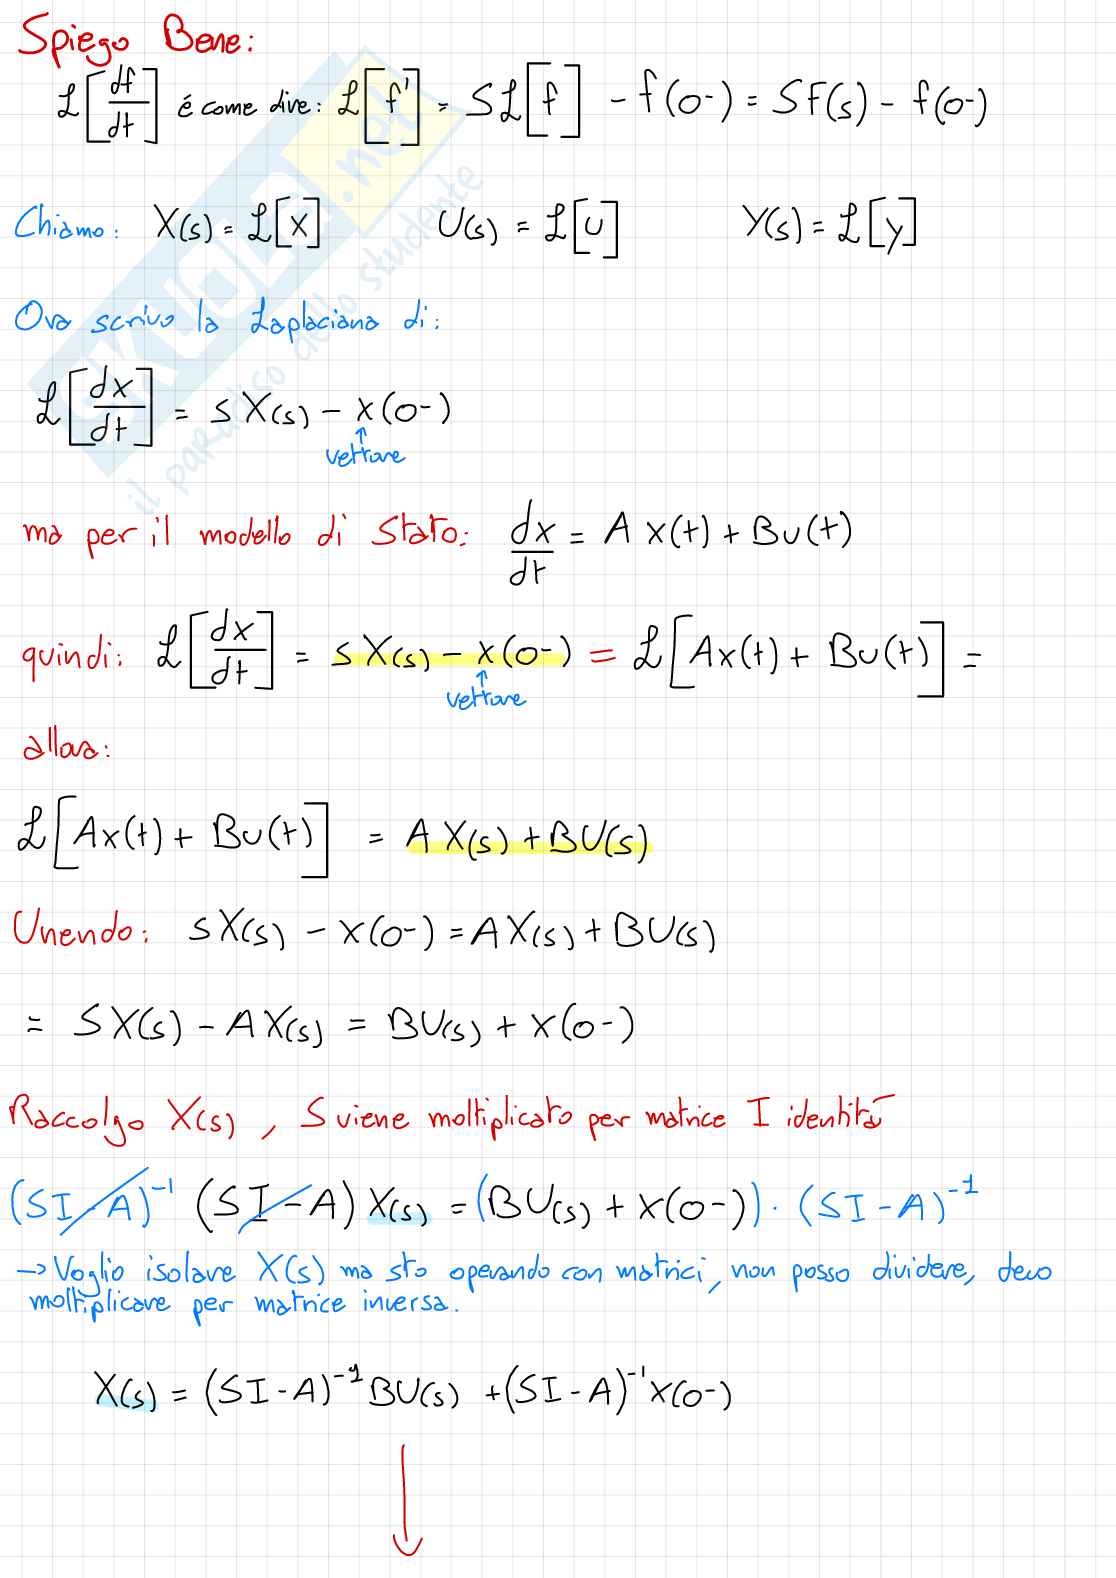 Spiego Bene:
ℒ[df/dt] é come dire: ℒ[f'] = Sℒ[f] - f(0-) = SF(s) - f(0-)
Chiamo: X(s) = ℒ[x] U(s) = ℒ[u] Y(s) = ℒ[y]
Ora scrivo la Laplaciana di:
ℒ[dx/dt] = sX(s) - x(0-)
↑
vettore
ma per il modello di stato: dx/dt = A x(t) + Bu(t)
quindi: ℒ[dx/dt] = sX(s) - x(0-) = ℒ[Ax(t) + Bu(t)] =
↑
vettore
allora:
ℒ[Ax(t) + Bu(t)] = AX(s) + BU(s)
Unendo: sX(s) - x(0-) = AX(s) + BU(s)
= SX(s) - AX(s) = BU(s) + x(0-)
Raccolgo X(s), S viene moltiplicato per matrice I identità
(SI-A)⁻¹ (SI-A) X(s) = (BU(s) + x(0-)) · (SI-A)⁻¹
→ Voglio isolare X(s) ma sto operando con matrici, non posso dividere, devo
moltiplicare per matrice inversa.
X(s) = (SI-A)⁻¹ BU(s) + (SI-A)⁻¹ x(0-)
SKUOLA.net
il paradiso dello studente